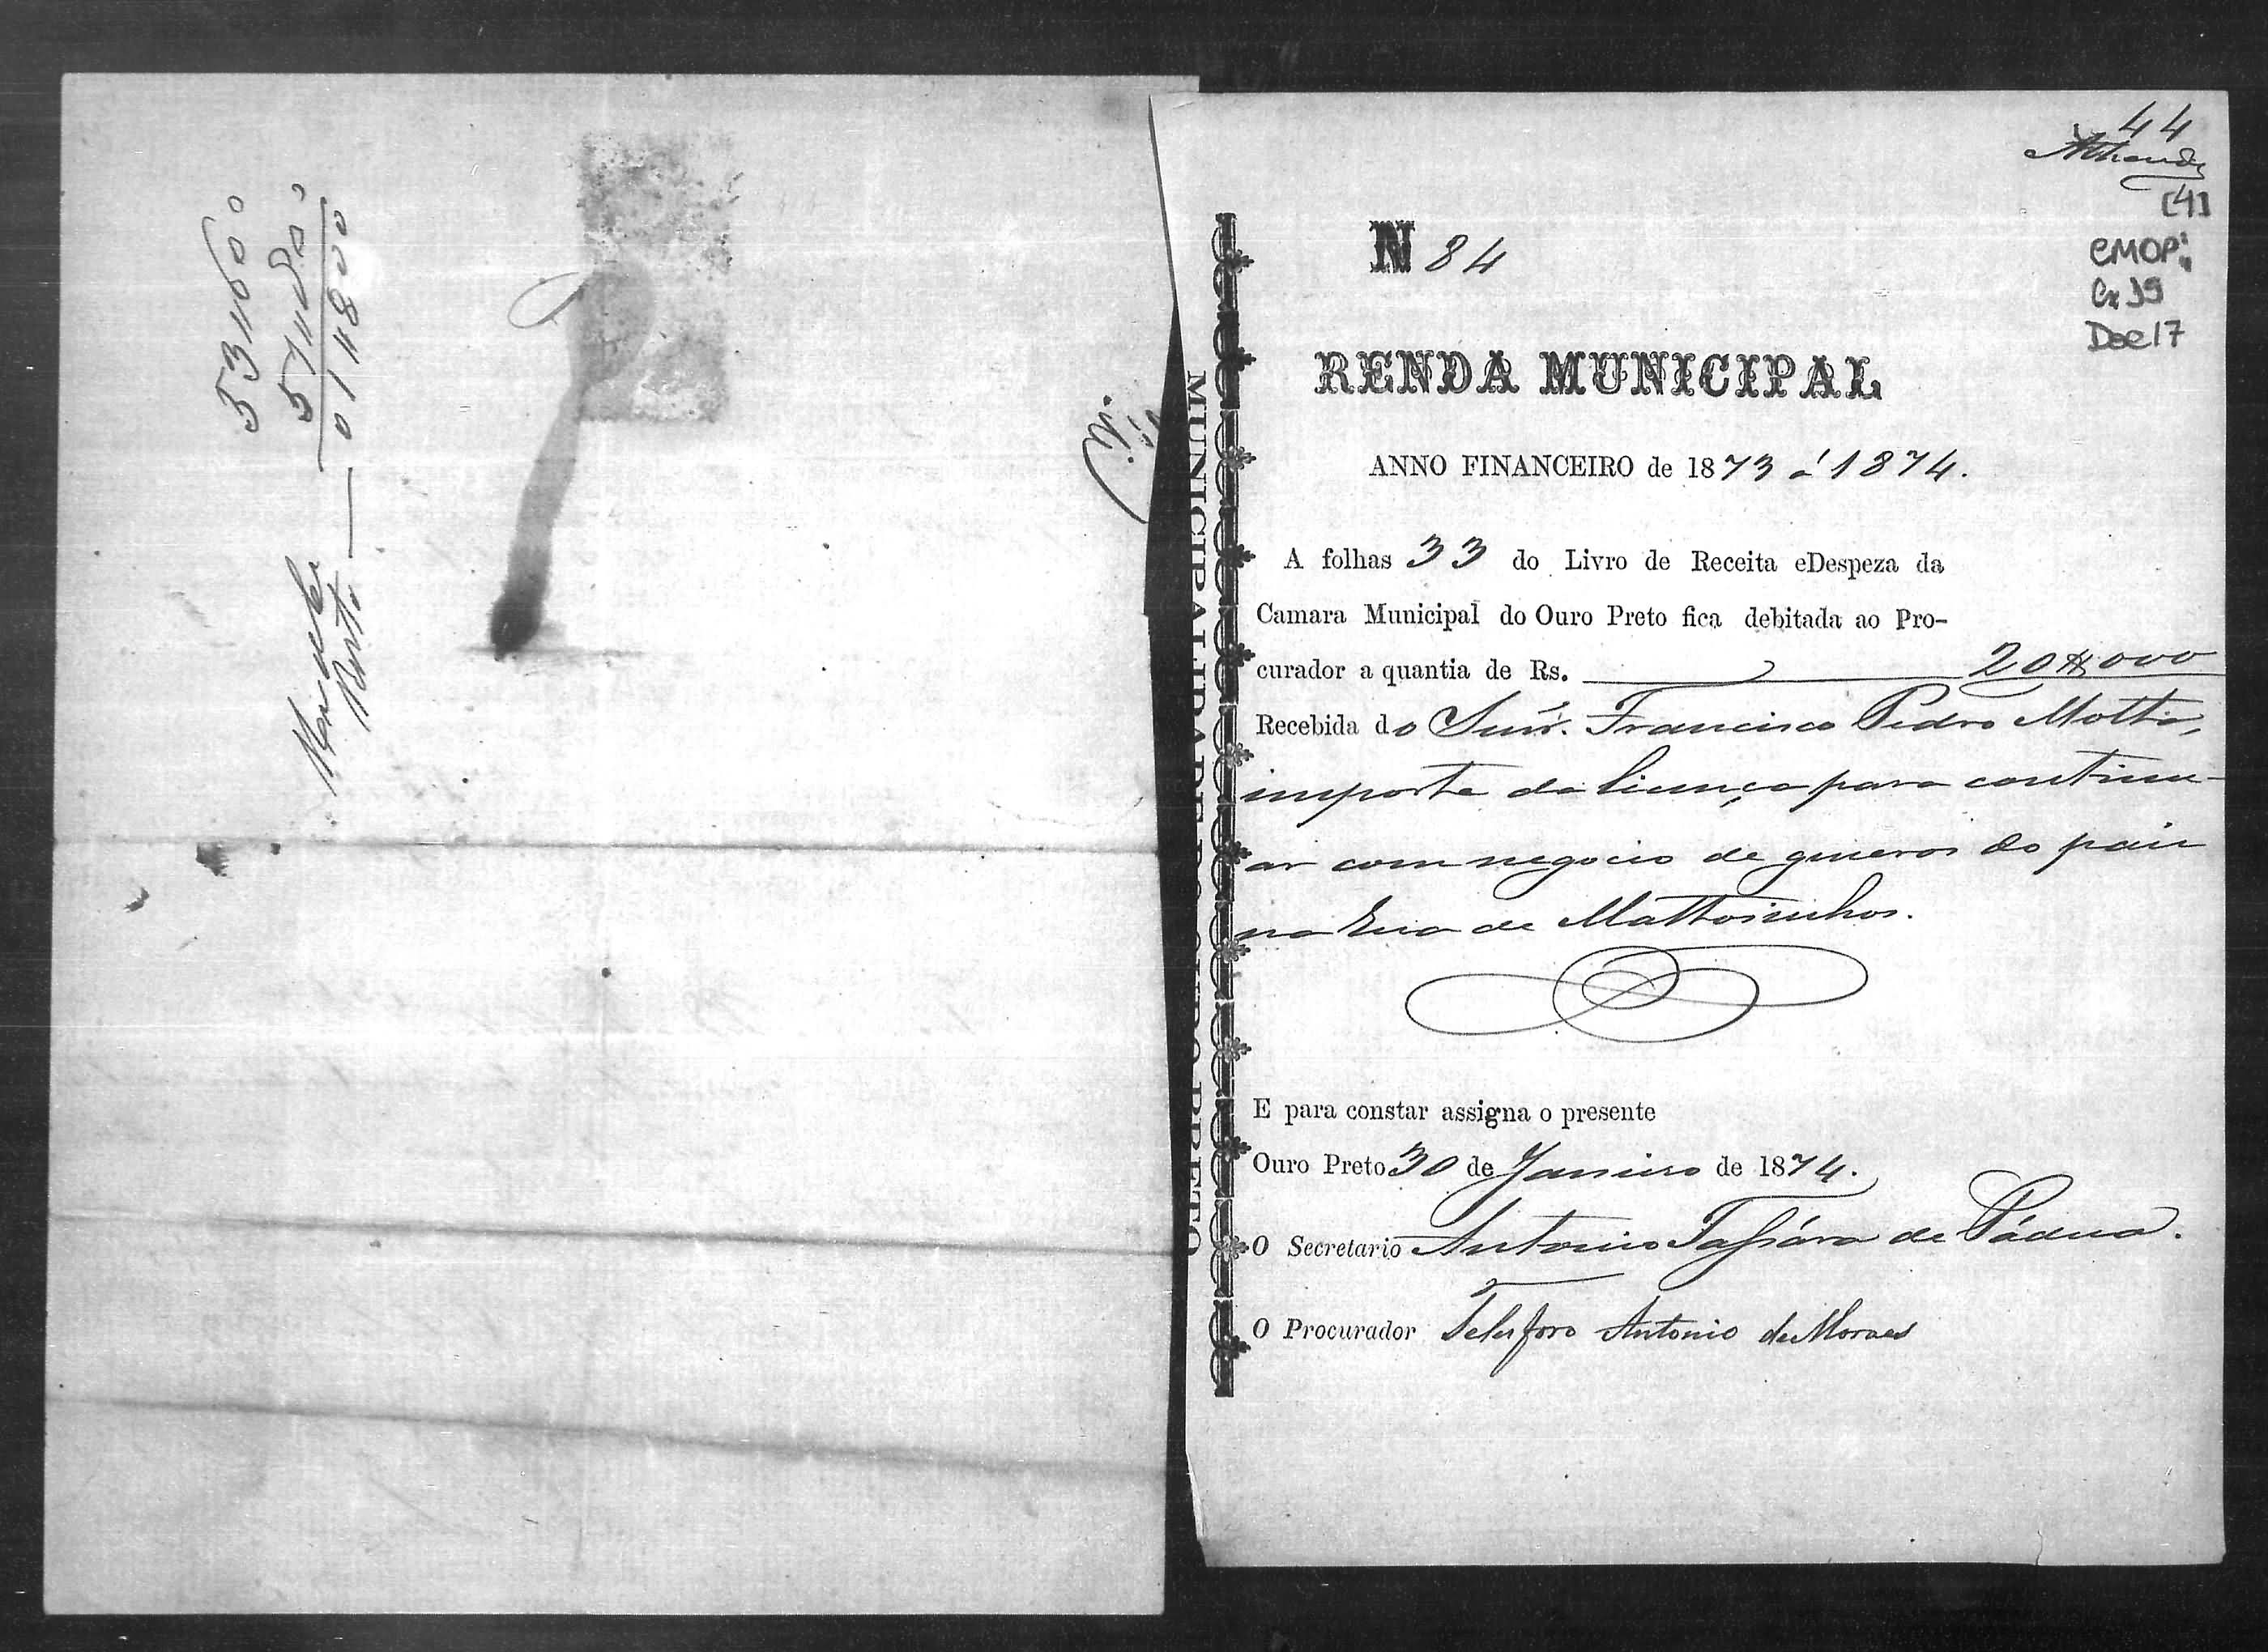 53$600
51$800
01$800
44
[4]
CMOP:
Cx 39
Doc 17
N 84
RENDA MUNICIPAL
ANNO FINANCEIRO de 1873 á 1874.
A folhas 33 do Livro de Receita eDespeza da
Camara Municipal do Ouro Preto fica debitada ao Pro-
curador a quantia de Rs. 20$000
Recebida do Snr. Francisco Pedro Motta,
importe da licença para continu-
ar com negocio de generos do paiz
na Rua de Mattosinhos.
E para constar assigna o presente
Ouro Preto 30 de Janeiro de 1874.
O Secretario Antonio Tassára de Pádua.
O Procurador Telesforo Antonio de Moraes
MUNICIPALIDADE DO OURO PRETO